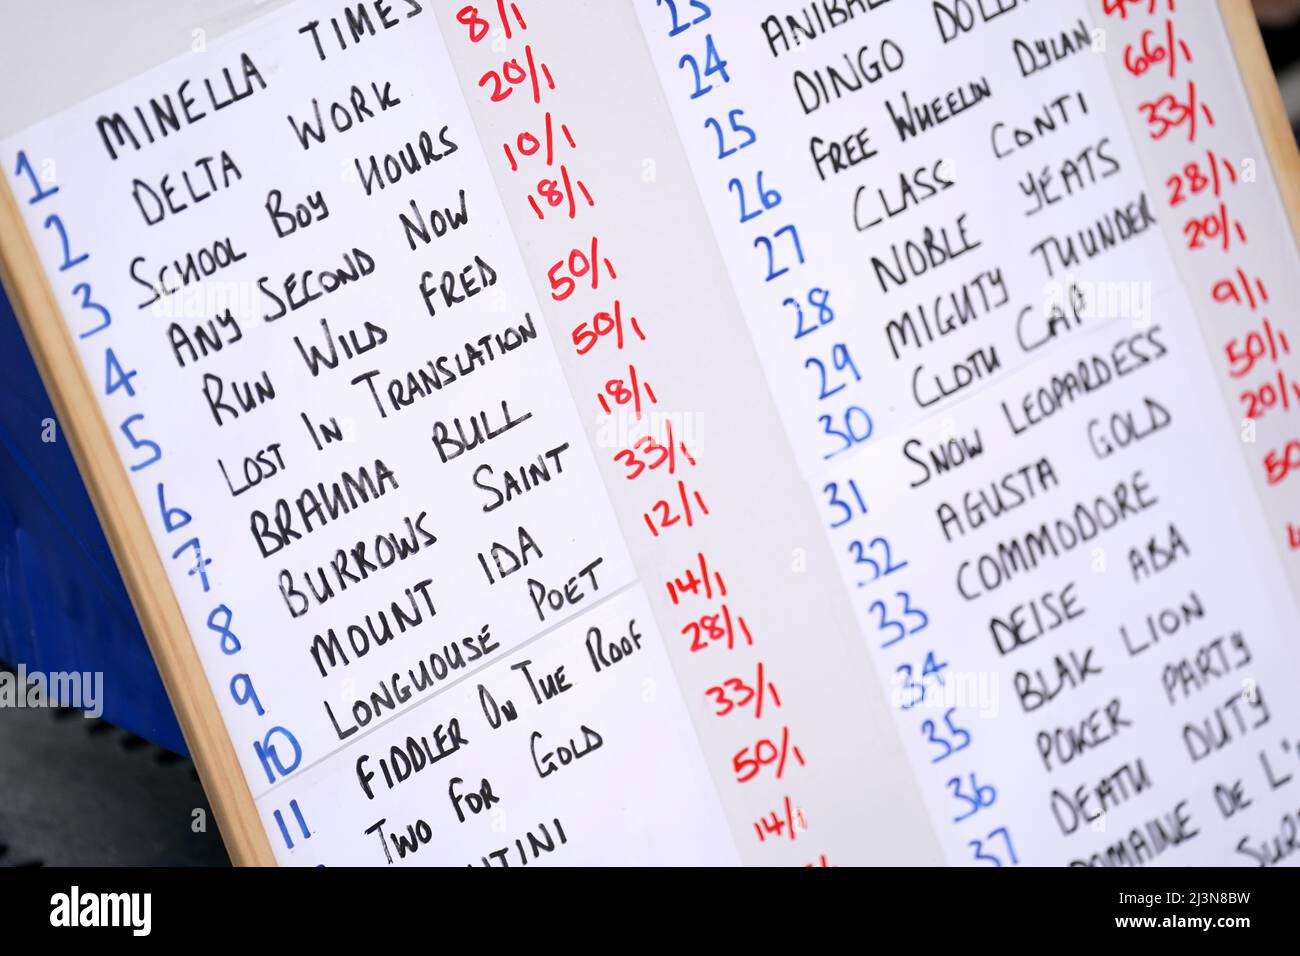 1 MINELLA TIMES
2 DELTA WORK 8/1
3 SCHOOL BOY HOURS 20/1
4 ANY SECOND NOW 10/1
5 RUN WILD FRED 18/1
6 LOST IN TRANSLATION 50/1
7 BRAHMA BULL 50/1
8 BURROWS SAINT 18/1
9 MOUNT IDA 33/1
10 LONGHOUSE POET 12/1
11 FIDDLER ON THE ROOF 14/1
TWO FOR GOLD 28/1
33/1
50/1
14/1
23
24
25 DINGO
26 FREE WHEELIN DYLAN
27 CLASS CONTI 66/1
28 NOBLE YEATS 33/1
29 MIGHTY THUNDER 28/1
30 CLOTH CAP 20/1
31 SNOW LEOPARDESS 9/1
32 AGUSTA GOLD 50/1
33 COMMODORE 20/1
34 DEISE ABA 50
35 BLAK LION
36 POKER PARTY
37 DEATH DUTY
DOMAINE DE L'
alamy
Image ID: 2J3N8BW
www.alamy.com